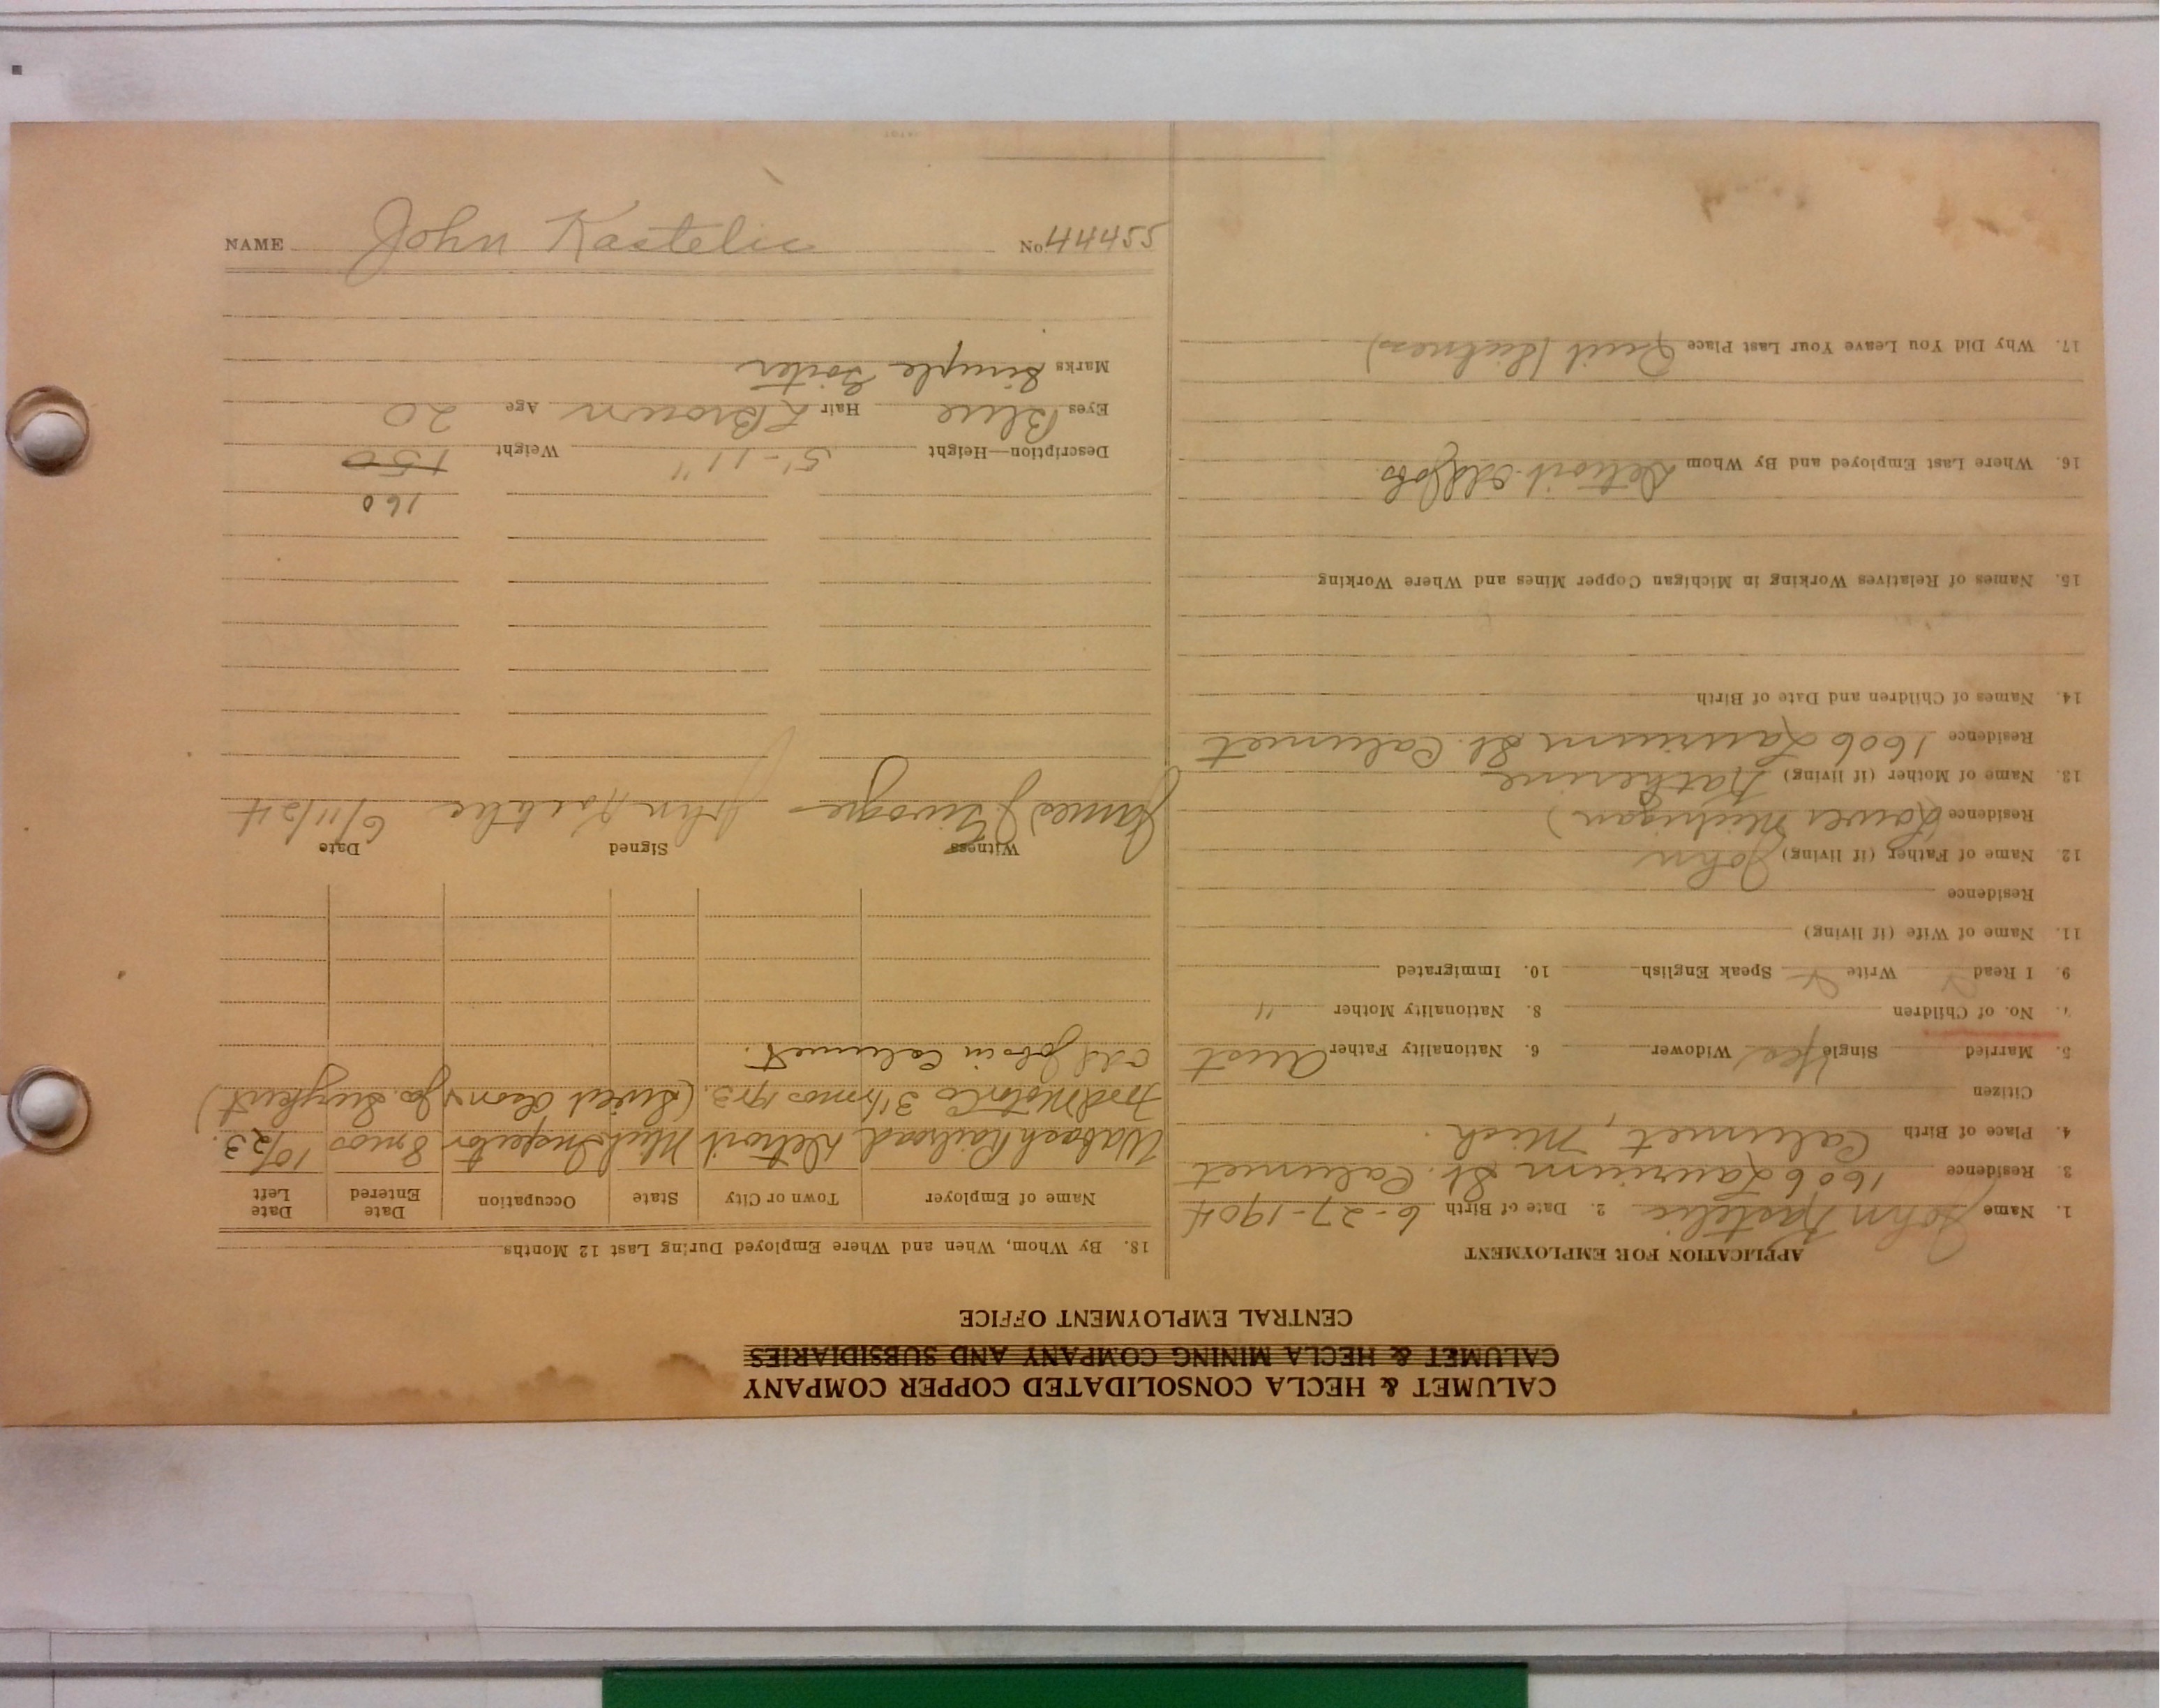 CALUMET & HECLA CONSOLIDATED COPPER COMPANY
CALUMET & HECLA MINING COMPANY AND SUBSIDIARIES
CENTRAL EMPLOYMENT OFFICE
APPLICATION FOR EMPLOYMENT
1. Name John Kastelic 2. Date of Birth 6-27-1904
3. Residence 1606 Laurium St. Calumet
4. Place of Birth Calumet, Mich.
Citizen
5. Married Single Yes Widower 6. Nationality Father Aust
7. No. of Children 8. Nationality Mother "
9. I Read Write Speak English 10. Immigrated
11. Name of Wife (if living)
Residence
12. Name of Father (if living) John
Residence Lower Michigan)
13. Name of Mother (if living) Katherine
Residence 1606 Laurium St. Calumet
14. Names of Children and Date of Birth
15. Names of Relatives Working in Michigan Copper Mines and Where Working
16. Where Last Employed and By Whom Detroit Odd Jobs
17. Why Did You Leave Your Last Place Quit (Sickness)
18. By Whom, When and Where Employed During Last 12 Months
Name of Employer Town or City State Occupation Date Entered Date Left
Wabash Railroad Detroit Mich Inspector 8 mos 10/23.
Ford Motor Co 3 1/2 mos 1923.
Odd Jobs in Calumet.
Witness Signed Date
James John Kastelic 6/11/24
160
Description—Height 5'-11" Weight 150
Eyes Blue Hair L Brown Age 20
Marks Simple Goiter
NAME John Kastelic No 44455